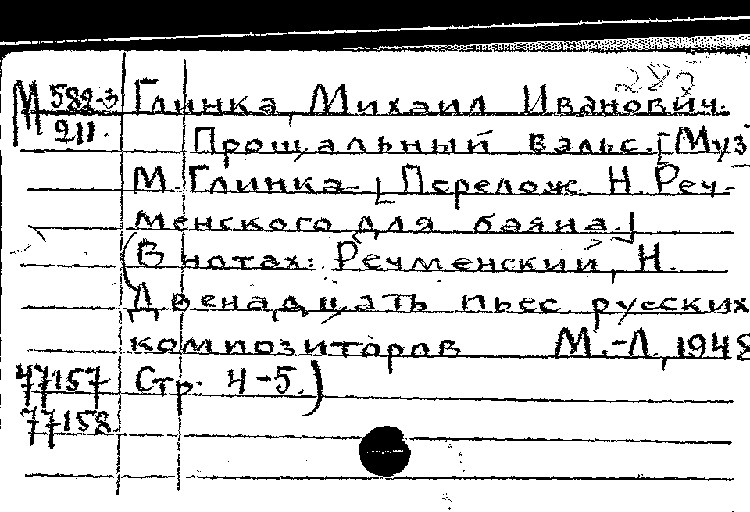 287
М 582-3 Глинка, Михаил Иванович.
211. Прощальный вальс. [Муз.
М. Глинка [Перелож. Н. Реч-
менского для баяна.]
(В нотах: Речменский, Н.
Двенадцать пьес русских
композиторов М.-Л, 1948
47157 Стр. 4-5.)
77158